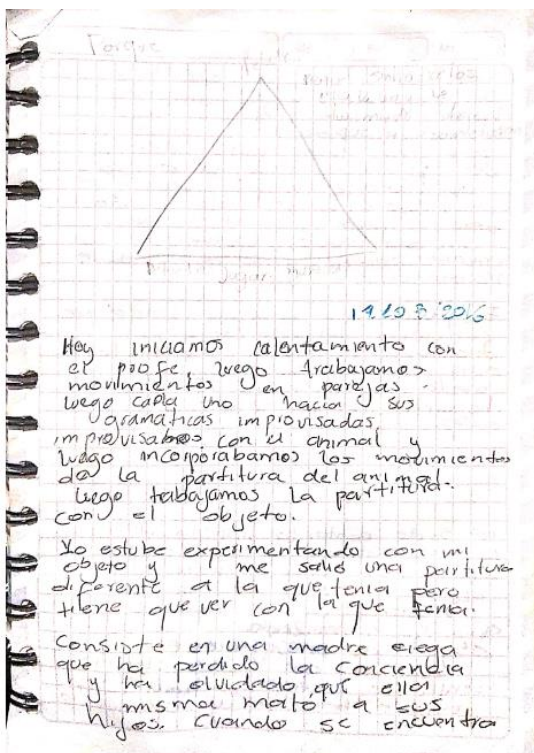 Porque
Hoy iniciamos calentamiento con
el profe, luego trabajamos
movimientos en parejas.
luego cada uno hacia sus
gramáticas improvisadas
improvisabamos con el animal y
luego incorporabamos los movimientos
de la partitura del animal.
luego trabajamos la partitura
con el objeto.
Yo estube experimentando con mi
objeto y me salio una partitura
diferente a la que tenia pero
tiene que ver con la que tenia.
Consiste en una madre ciega
que ha perdido la conciencia
y ha olvidado que ella
misma mato a sus
hijos. Cuando se encuentra